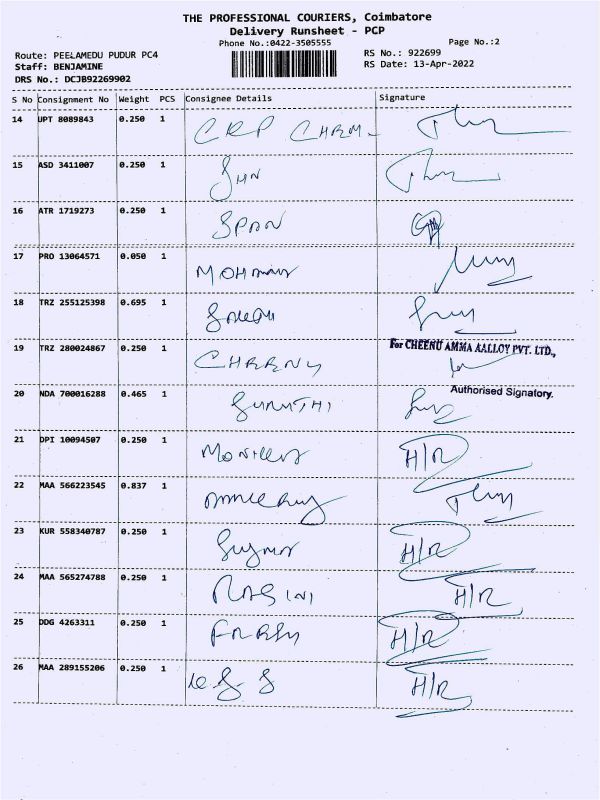 THE PROFESSIONAL COURIERS, Coimbatore
Delivery Runsheet - PCP
Phone No.:0422-3505555 Page No.:2
Route: PEELAMEDU PUDUR PC4 RS No.: 922699
Staff: BENJAMINE RS Date: 13-Apr-2022
DRS No.: DCJB92269902
S No Consignment No Weight PCS Consignee Details Signature
14 UPT 8089843 0.250 1
15 ASD 3411007 0.250 1
16 ATR 1719273 0.250 1 SPAN
17 PRO 13064571 0.050 1
18 TRZ 255125398 0.695 1
For CHEENU AMMA AALLOY PVT. LTD.,
19 TRZ 280024867 0.250 1
Authorised Signatory.
20 NDA 700016288 0.465 1
21 DPI 10094507 0.250 1 H/R
22 MAA 566223545 0.837 1
23 KUR 558340787 0.250 1 H/R
24 MAA 565274788 0.250 1 RAGINI H/R
25 DDG 4263311 0.250 1 H/R
26 MAA 289155206 0.250 1 H/R